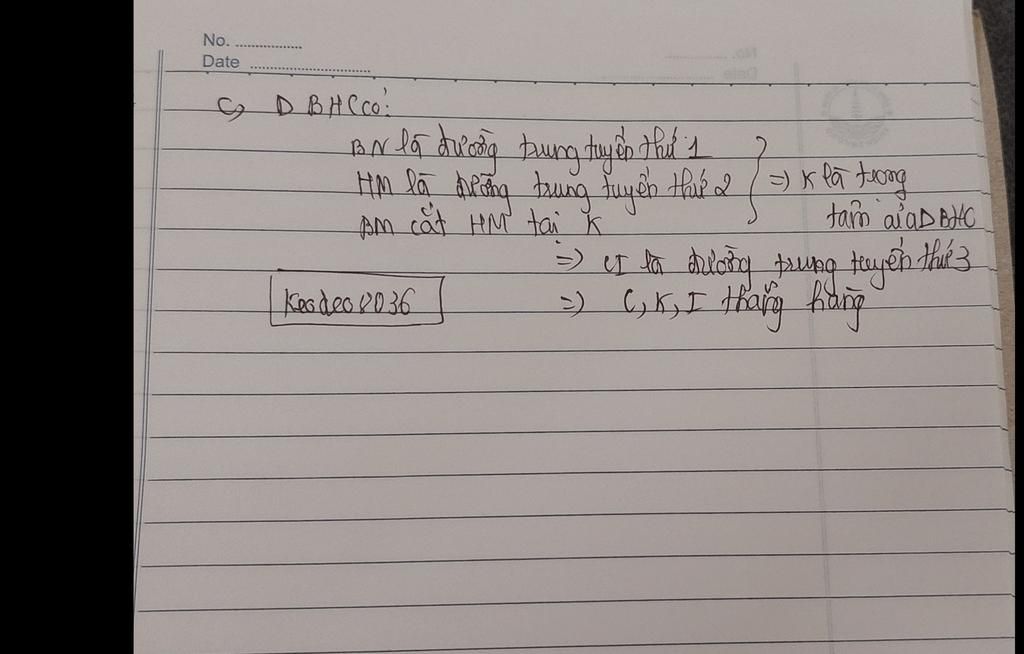 No. ...............
Date ...............................
C, D BHC có:
BN là đường trung tuyến thứ 1
HM là đường trung tuyến thứ 2
BM cắt HM tại K
=> K là trong
tâm của D BHC
=> CI là đường trung tuyến thứ 3
=> C, K, I thẳng hàng
Keodeo8036